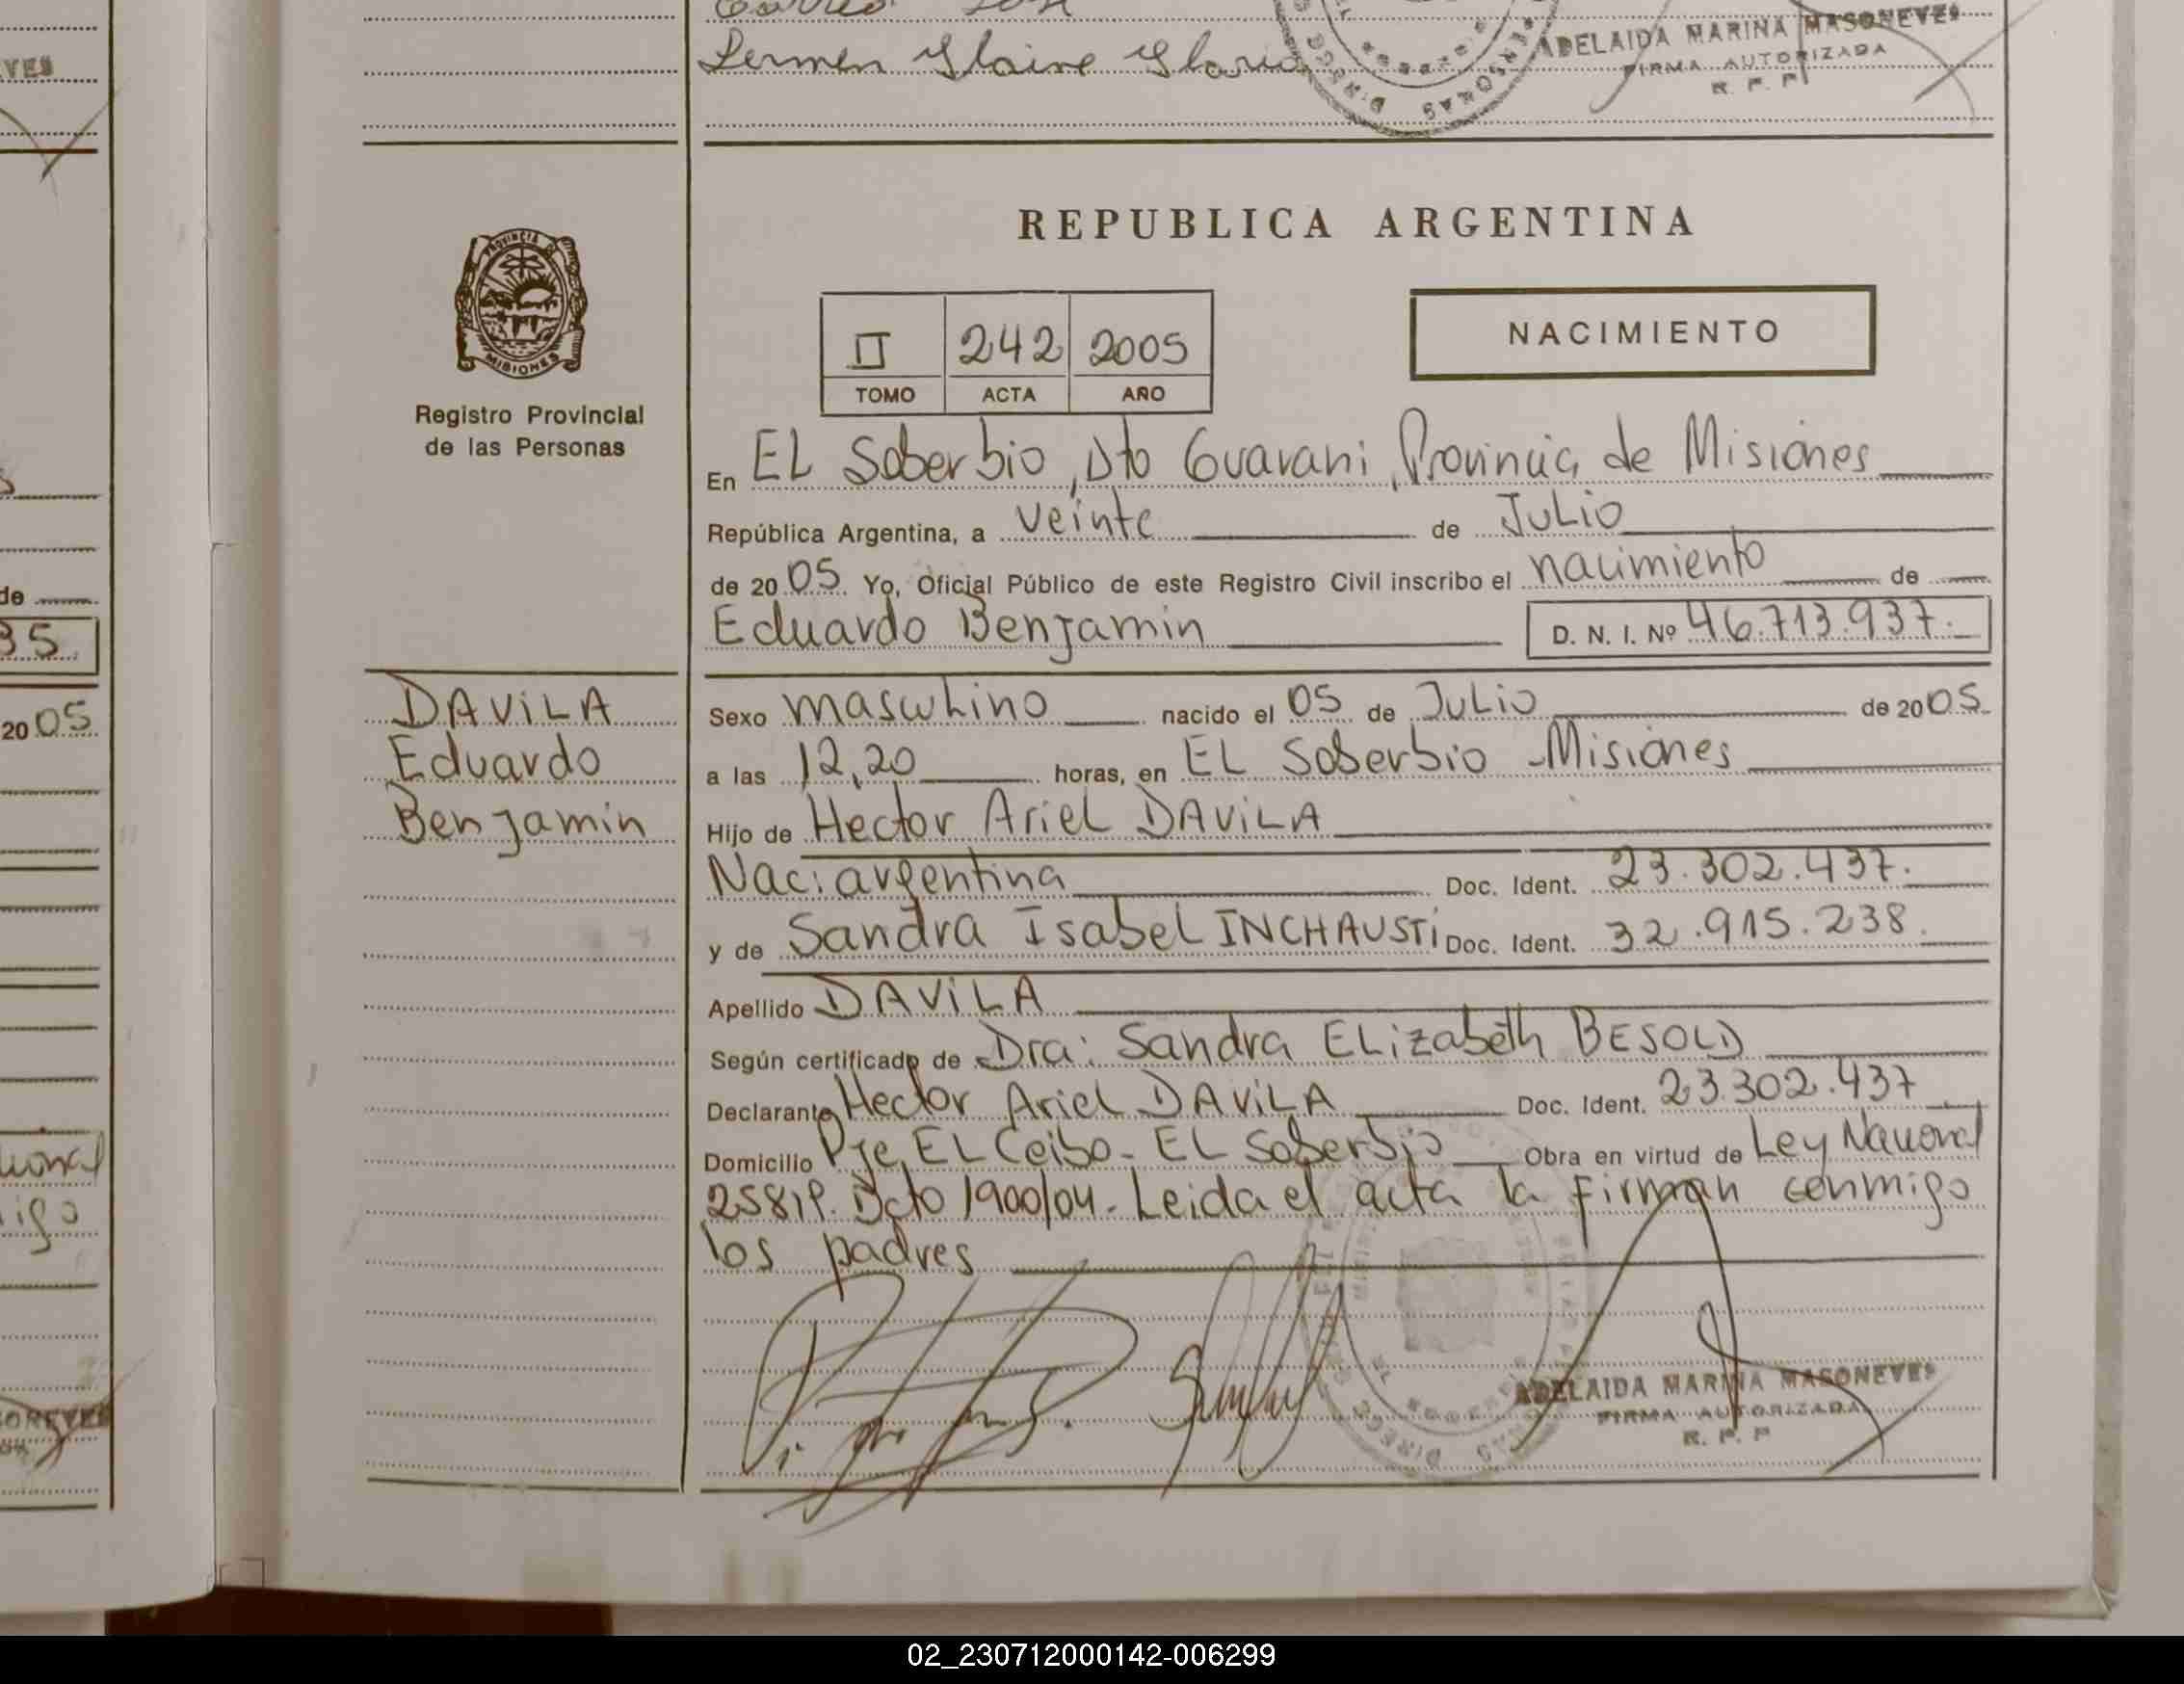 Lermen Glaire Gloria
ADELAIDA MARINA MASONEVES
FIRMA AUTORIZADA
R. P. P
VES
REPUBLICA ARGENTINA
PROVINCIA DE
MISIONES
Registro Provincial
de las Personas
II 242 2005
TOMO ACTA AÑO
NACIMIENTO
En EL Soberbio, Dto Guarani, Provincia de Misiones
República Argentina, a veinte de Julio
de 2005 Yo, Oficial Público de este Registro Civil inscribo el nacimiento de
Eduardo Benjamin D. N. I. Nº 46.713.937.
de
35
20 05
DAViLA
Eduardo
Benjamin
Sexo masculino nacido el 05 de Julio de 2005
a las 12,20 horas, en EL Soberbio - Misiones
Hijo de Hector Ariel DAViLA
Nac: argentina Doc. Ident. 23.302.437.
y de Sandra Isabel INCHAUSTi Doc. Ident. 32.915.238.
Apellido DAViLA
Según certificado de Dra: Sandra ELizabeth BESOLD
Declarante Hector Ariel DAViLA Doc. Ident. 23.302.437
Domicilio Pje EL Ceibo - EL Soberbio Obra en virtud de Ley Nacional
25819. Dcto 1900/04. Leida el acta la firman conmigo
los padres
ADELAIDA MARINA MASONEVES
FIRMA AUTORIZADA
R. P. P
02_230712000142-006299